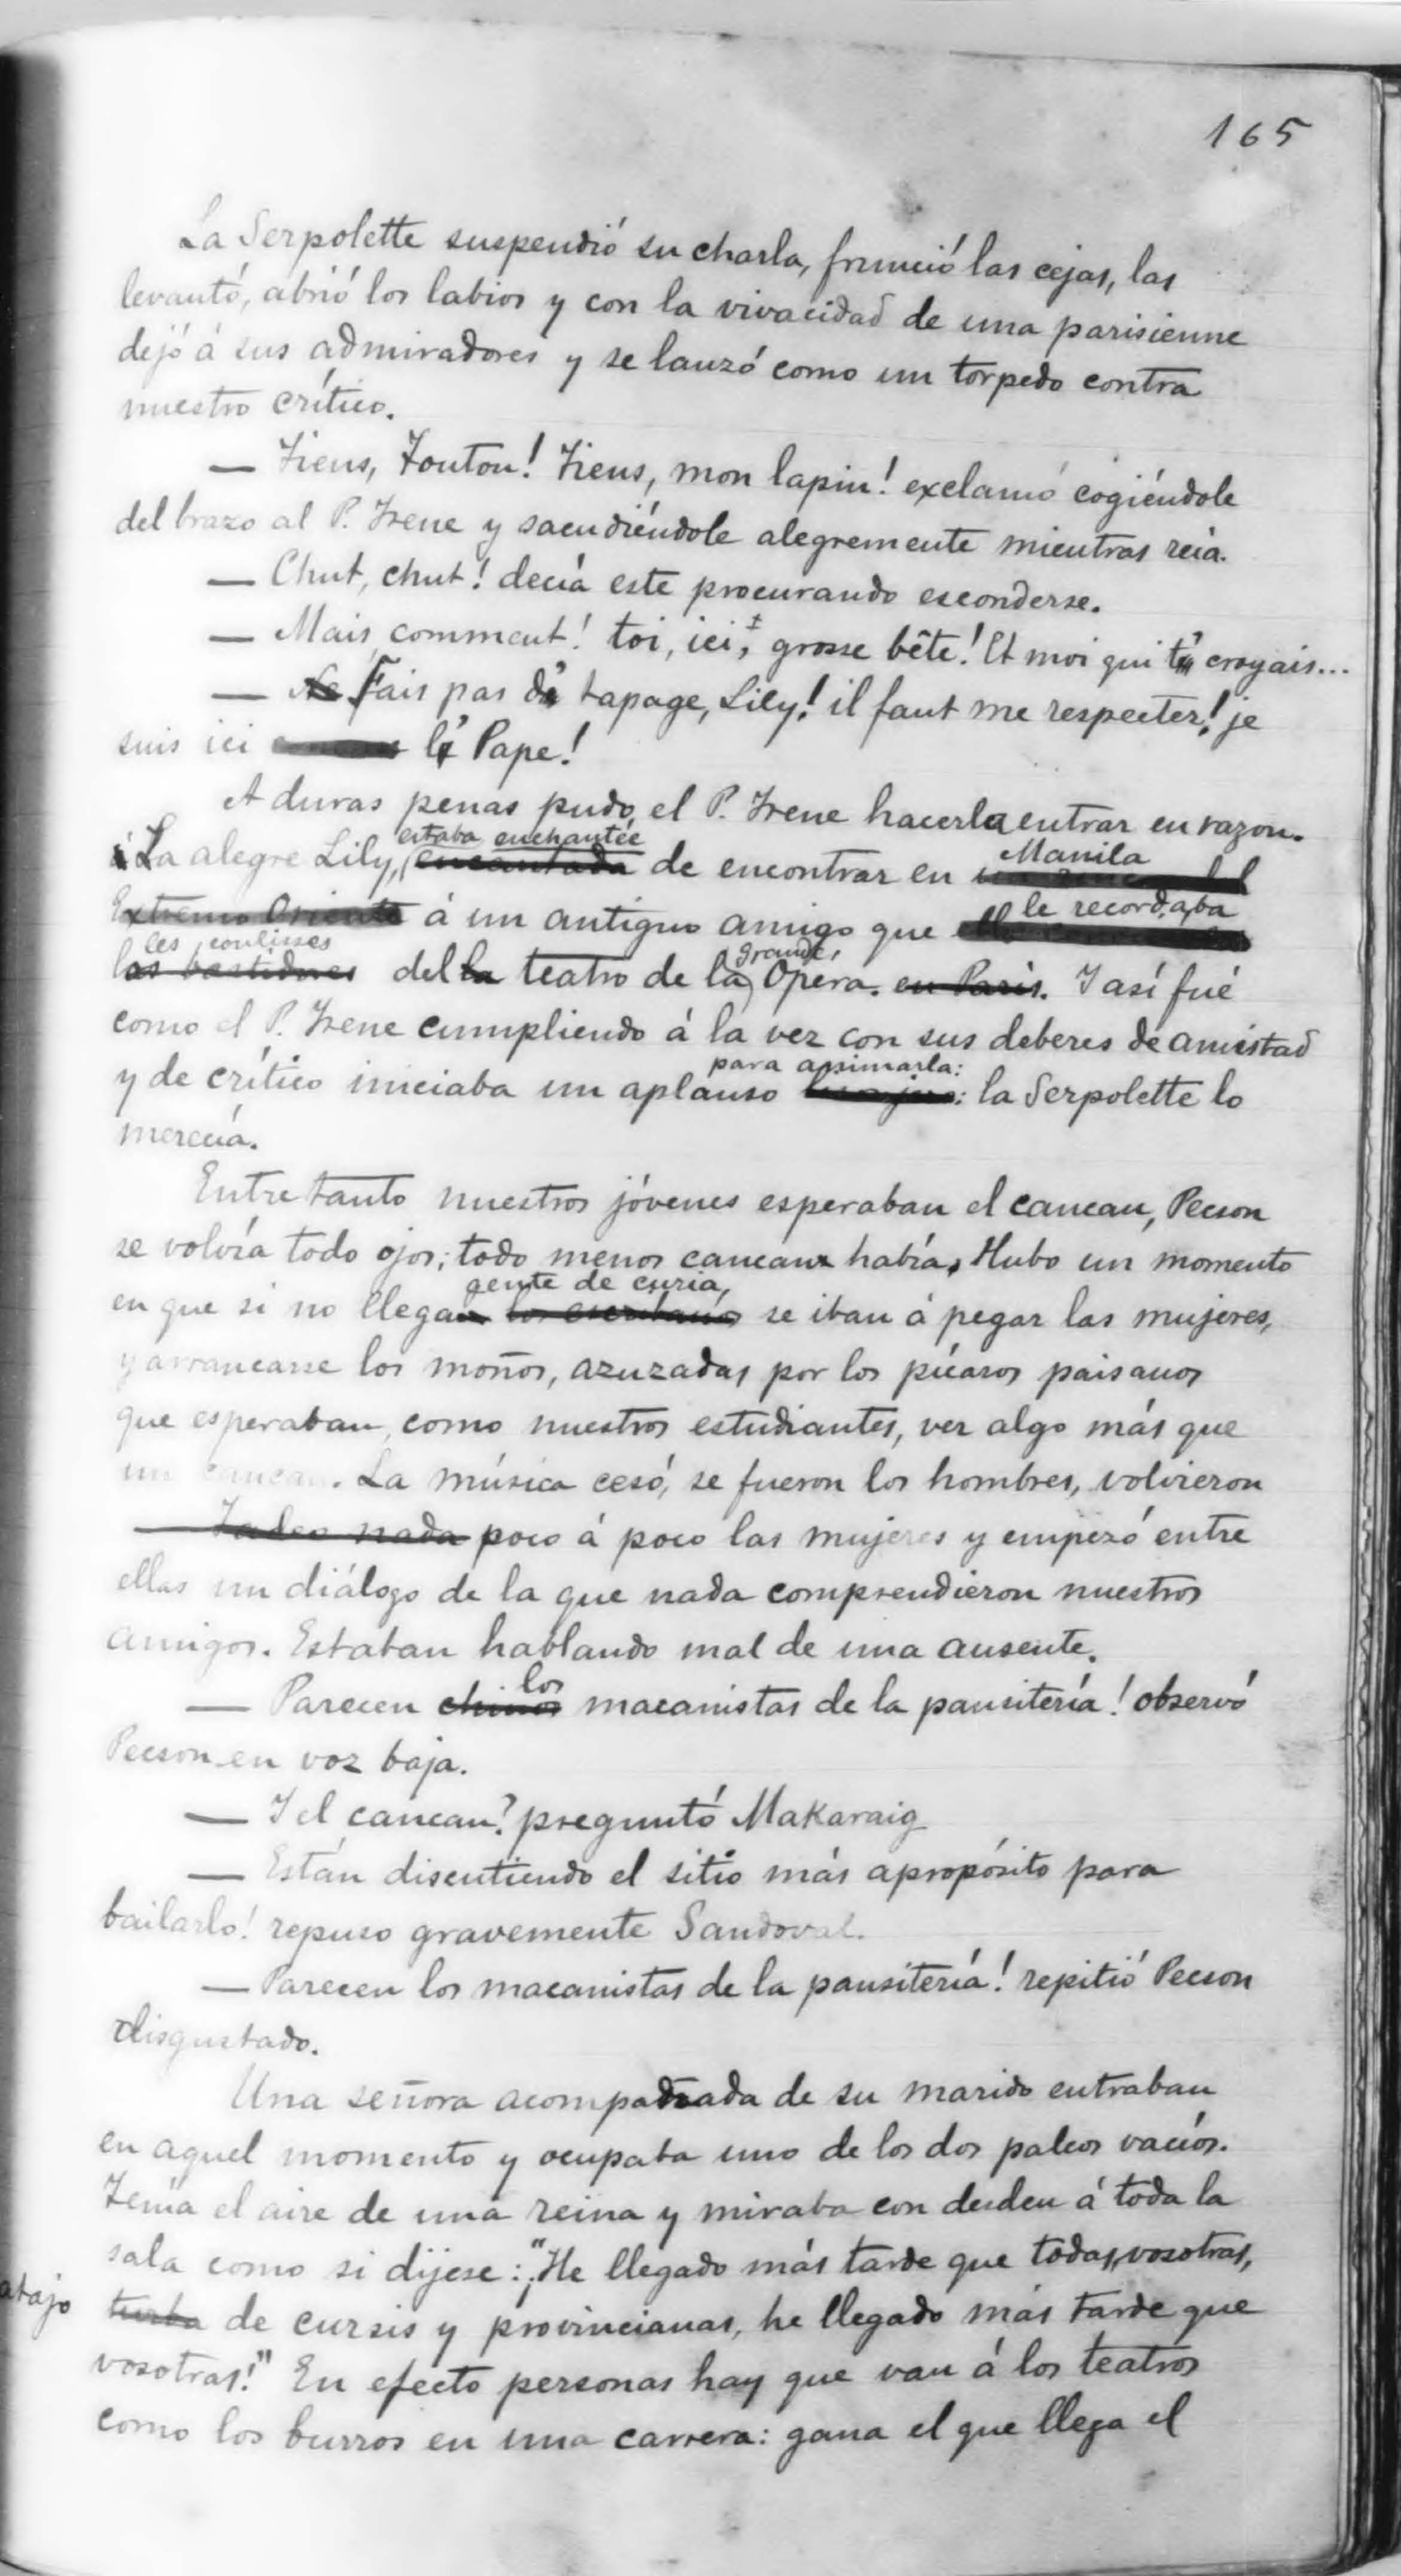 165
La Serpolette suspendió su charla, frunció las cejas, las
levantó, abrió los labios y con la vivacidad de una parisienne
dejó á sus admiradores y se lanzó como un torpedo contra
nuestro crítico.
— Tiens, Toutou! Tiens, mon lapin! exclamó cogiéndole
del brazo al P. Irene y sacudiéndole alegremente mientras reía.
— Chut, chut! decía este procurando esconderse.
— Mais, comment! toi, ici, grosse bête! Et moi qui t' croyais...
— Ne Fais pas d' tapage, Lily! il faut me respecter! je
suis ici l' Pape!
A duras penas pudo el P. Irene hacerla entrar en razon.
estaba enchantée Manila
La alegre Lily, encantada de encontrar en
le recordaba
Extremo Oriente á un antiguo amigo que
les coulisses grande,
las bastidores del la teatro de la Opera. en Paris. Y así fué
como el P. Irene cumpliendo á la vez con sus deberes de amistad
para animarla:
y de crítico iniciaba un aplauso : la Serpolette lo
merecía.
Entretanto nuestros jóvenes esperaban el cancan, Pecson
se volvía todo ojos; todo menos cancan había. Hubo un momento
gente de curia,
en que si no llegan los escribanos se iban á pegar las mujeres,
y arrancarse los moños, azuzadas por los pícaros paisanos
que esperaban, como nuestros estudiantes, ver algo más que
un cancan. La música cesó, se fueron los hombres, volvieron
nada poco á poco las mujeres y empezó entre
ellas un diálogo de la que nada comprendieron nuestros
amigos. Estaban hablando mal de una ausente.
los
— Parecen chinos macanistas de la pansitería! observó
Pecson en voz baja.
— Y el cancan? preguntó Makaraig
— Están discutiendo el sitio más apropósito para
bailarlo! repuso gravemente Sandoval.
— Parecen los macanistas de la pansitería! repitió Pecson
disgustado.
Una señora acompañada de su marido entraban
en aquel momento y ocupaba uno de los dos palcos vacíos.
Tenía el aire de una reina y miraba con desden á toda la
sala como si dijese: "¡He llegado más tarde que todas vosotras,
atajo turba de cursis y provincianas, he llegado más tarde que
vosotras!" En efecto personas hay que van á los teatros
como los burros en una carrera: gana el que llega el